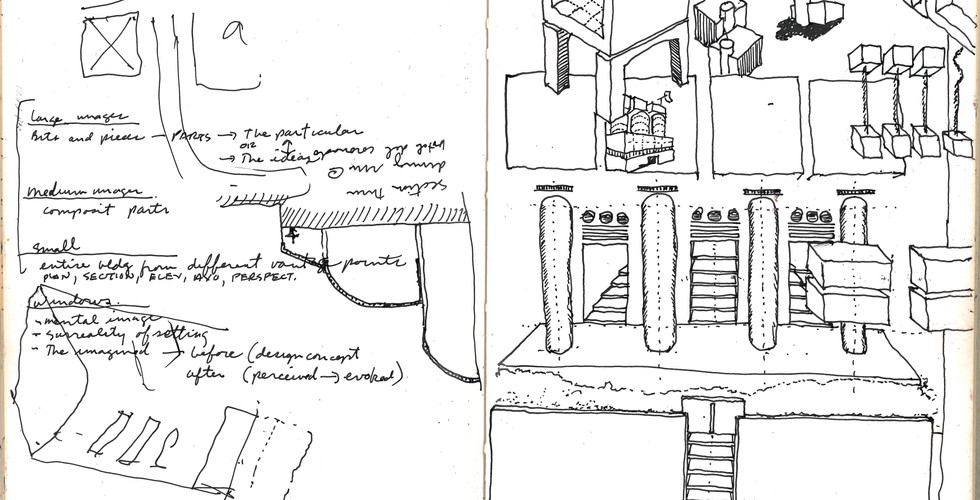 a
large images
Bits and pieces — PARTS → The particular
or
→ The ideas
section thru
medium images
composit parts
small
entire bldg from different vantage points
PLAN, SECTION, ELEV, AXO, PERSPECT.
windows.
- mental image
- surreality of setting
- The imagined → before (design concept
after (perceived → evoked)